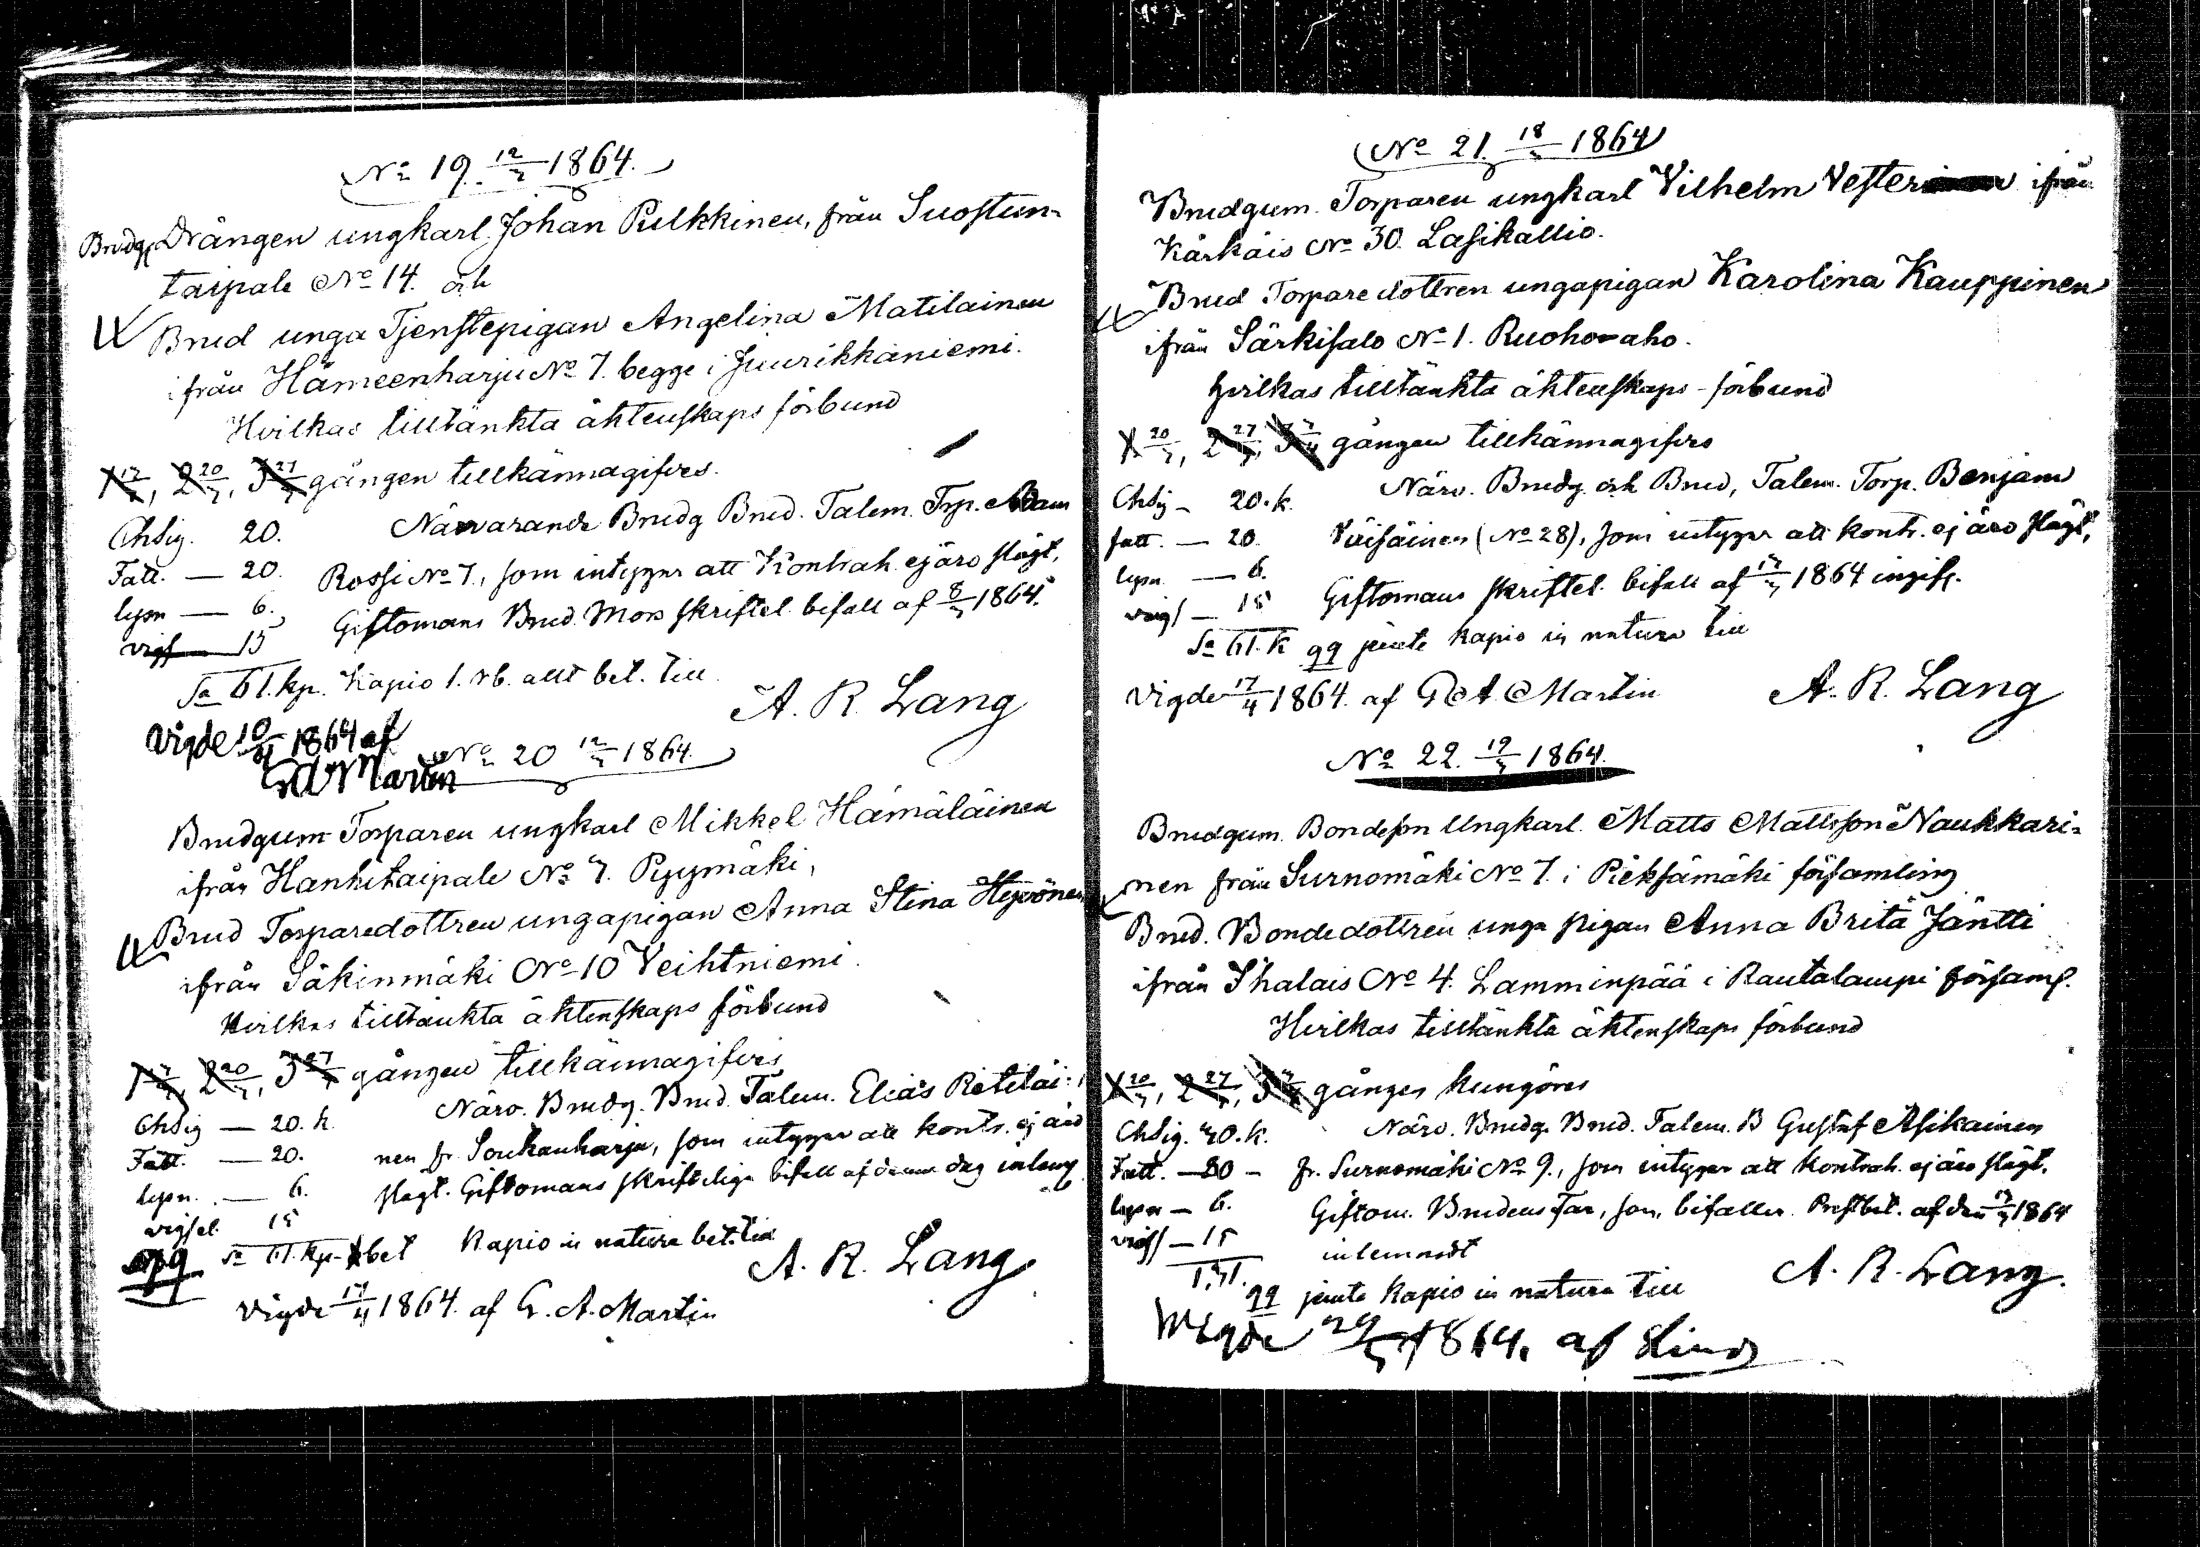 No 19. 12/3 1864.
Brudg. Drängen ungkarl. Johan Pulkkinen, från Suostun-
taipale No 14. och
Brud unga Tjenstepigan Angelina Matilainen
ifrån Hämeenharju No 7. begge i Juurikkaniemi.
Hvilkas tilltänkta äktenskaps förbund
1 13/3, 2 20/3, 3 27/3 gången tillkännagifves.
Chsig. 20. Närvarande Brudg Brud. Talem. Trp. Adam
Fatt. — 20. Rossi No 7., som intygar att Kontrah. ej äro slägt,
lysn — 6. Giftomans Brud. Mors skriftel. bifall af 8/3 1864.
vigs — 15
Sa 61. kp. Kapio 1. rb. allt bet. till
A. R. Lang
Vigde 10/4 1864 af
G A Martin
No 20 12/3 1864.
Brudgum Torparen ungkarl Mikkel Hämäläinen
ifrån Hankitaipale No 7. Pyymäki,
Brud Torparedottren ungapigan Anna Stina Hyvönen
ifrån Säkinmäki No 10 Veihtniemi.
Hvilkas tilltänkta äktenskaps förbund
1 13/3, 2 20/3, 3 27/3 gången tillkännagifves
Chsig — 20. k. Närv. Brudg. Brud. Talem. Elias Rötiläi-
Fatt. — 20. nen fr. Soukanharju, som intygar att kontr. ej äro
lysn. — 6. slägt. Giftomans skriftliga bifall af denna dag inlemn
vigsel 15
qq Sa 61. kp. bet Kapio in natura bet. till
A. R. Lang
Vigde 17/4 1864. af G. A. Martin
No 21. 18/3 1864
Brudgum. Torparen ungkarl Vilhelm Vester ifrån
Kärkäis No 30. Lasikallio.
Brud Torparedottren ungapigan Karolina Kauppinen
ifrån Särkisalo No 1. Ruohoaho.
hvilkas tilltänkta äktenskaps-förbund
1 20/3, 2 27/3, 3 3/4 gången tillkännagifves
Chsig — 20. k. Närv. Brudg. och Brud, Talem. Torp. Benjam
fatt. — 20 Väisäinen (No 28), som intygar att kontr. ej äro slägt,
lysn — 6. Giftomans skriftel. bifall af 17/3 1864 ingift.
vigs — 15
Sa 61. k qq jemte kapio in natura till
Vigde 17/4 1864. af G A Martin A. R. Lang
No 22. 19/3 1864.
Brudgum. Bondeson Ungkarl. Matts Mattsson Naukkari-
nen från Surnomäki No 7. i Pieksämäki församling
Brud. Bondedottren unga pigan Anna Brita Jäntti
ifrån Ihalais No 4. Lamminpää i Rautalampi församl.
Hvilkas tilltänkta äktenskaps förbund
1 20/3, 2 27/3, 3 3/4 gången kungöres
Chsig. 30. k. Närv. Brudg. Brud. Talem. B Gustaf Asikainen
Fatt. — 30 — fr. Surnomäki No 9., som intygar att Kontrah. ej äro slägt.
lysn — 6. Giftom. Brudens Far, som bifaller. Prestbet. af den 17/3 1864
vigs — 15 inlemnadt
qq jemte Kapio in natura till A. R. Lang.
Vigde 29/3 1864. af Lind